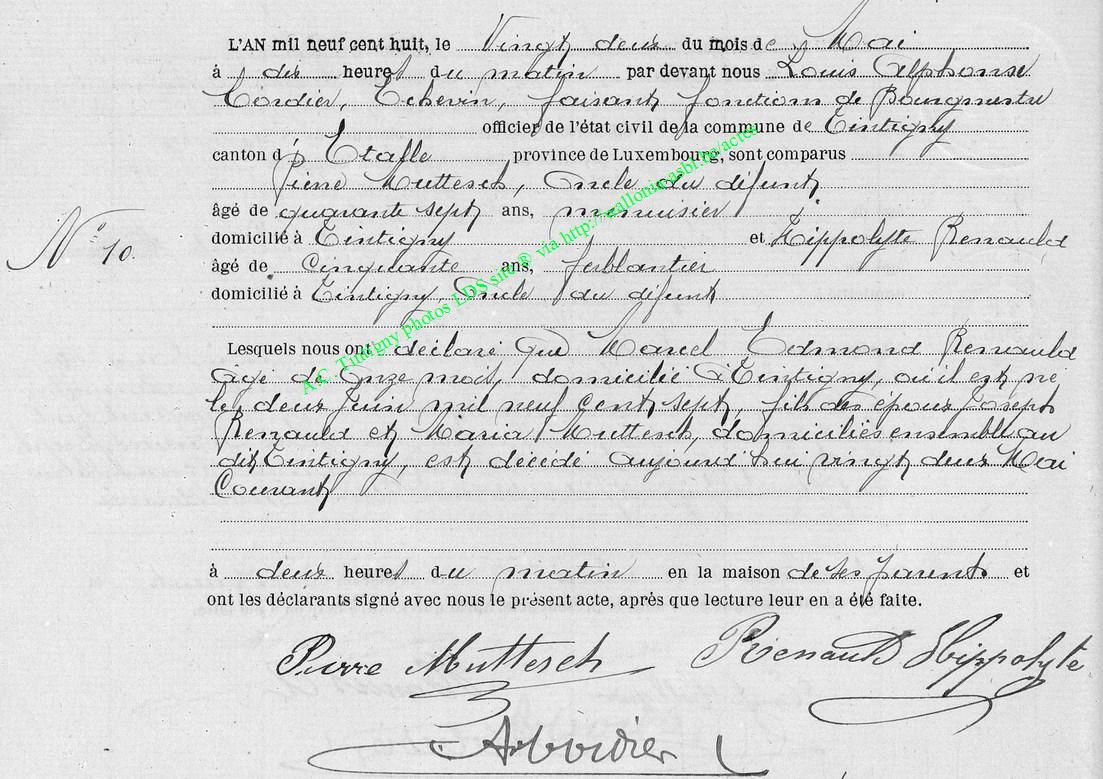 L'AN mil neuf cent huit, le Vingt deux du mois de Mai
à dix heures du matin par devant nous Louis Alphonse
Cordier, Echevin, faisant fonctions de Bourgmestre
officier de l'état civil de la commune de Tintigny
canton d' Etalle, province de Luxembourg, sont comparus
Pierre Muttesch, Oncle du défunt
âgé de quarante sept ans, menuisier
N° 10.
domicilié à Tintigny et Hippolyte Renauld
âgé de Cinquante ans, ferblantier
domicilié à Tintigny, Oncle du défunt
Lesquels nous ont déclaré que Marcel Edmond Renauld
âgé de Onze mois, domicilié à Tintigny, où il est né
le deux Juin mil neuf cent sept, fils des époux Joseph
Renauld et Maria Muttesch, domiciliés ensemble au
dit Tintigny, est décédé aujourd'hui vingt deux Mai
Courant
à deux heures du matin en la maison de ses parents et
ont les déclarants signé avec nous le présent acte, après que lecture leur en a été faite.
Pierre Muttesch Renauld Hippolyte
A.C. Tintigny photos LDS site® via http://wallonia.asbl.be/actes